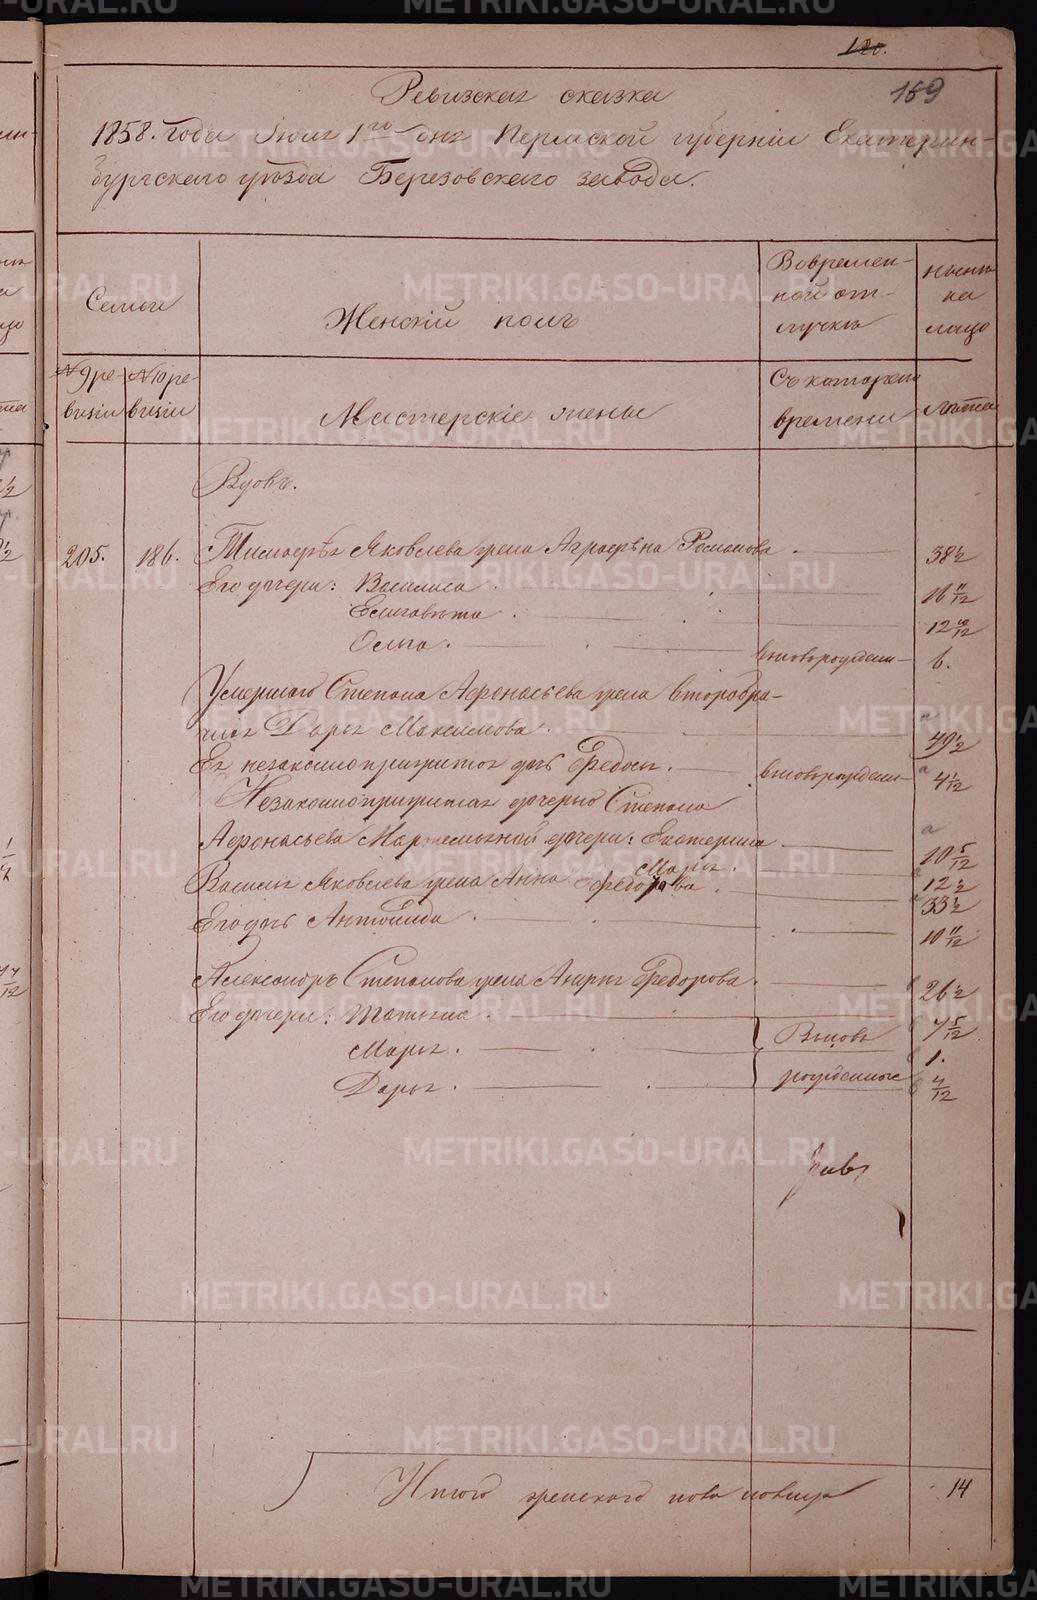 120.
169
Ревизская сказка
1858. года Июля 1го дня Пермской губернии Екатерин-
бургского уѣзда Березовского завода.
Семьи
Женскій полъ
Вовремен-
ной от-
лучкѣ
нынѣ
на
лицо
№ 9 ре-
визіи
№ 10 ре-
визіи
Мастерскіе жены
Съ котораго
времени
лѣта
Вдовъ.
205. 186. Тимофѣя Яковлева жена Аграфѣна Романова 38½
Его дочери: Василиса 16 11/12
Елизавѣта 12
Ольга. вновьрожден- 6.
Умершаго Степана Афонасьева жена второбра-
чная Дарья Максимова 49½
Ея незаконноприжитая дчь Федосья. вновьрожден- 4½
Незаконноприжитая дочерью Степана
Афонасьева Мартемьяной дочери: Екатерина 10 5/12
Марья. 12½
Василья Яковлева жена Анна Федорова 33½
Его дчь Антонида 10 11/12
Александръ Степанова жена Федорова. 26½
Его дочери: Татьяна 7 5/12
Марья. Вновь 1.
Дарья. рожденные 4/12
Итого женского пола налицо 14
METRIKI.GASO-URAL.RU